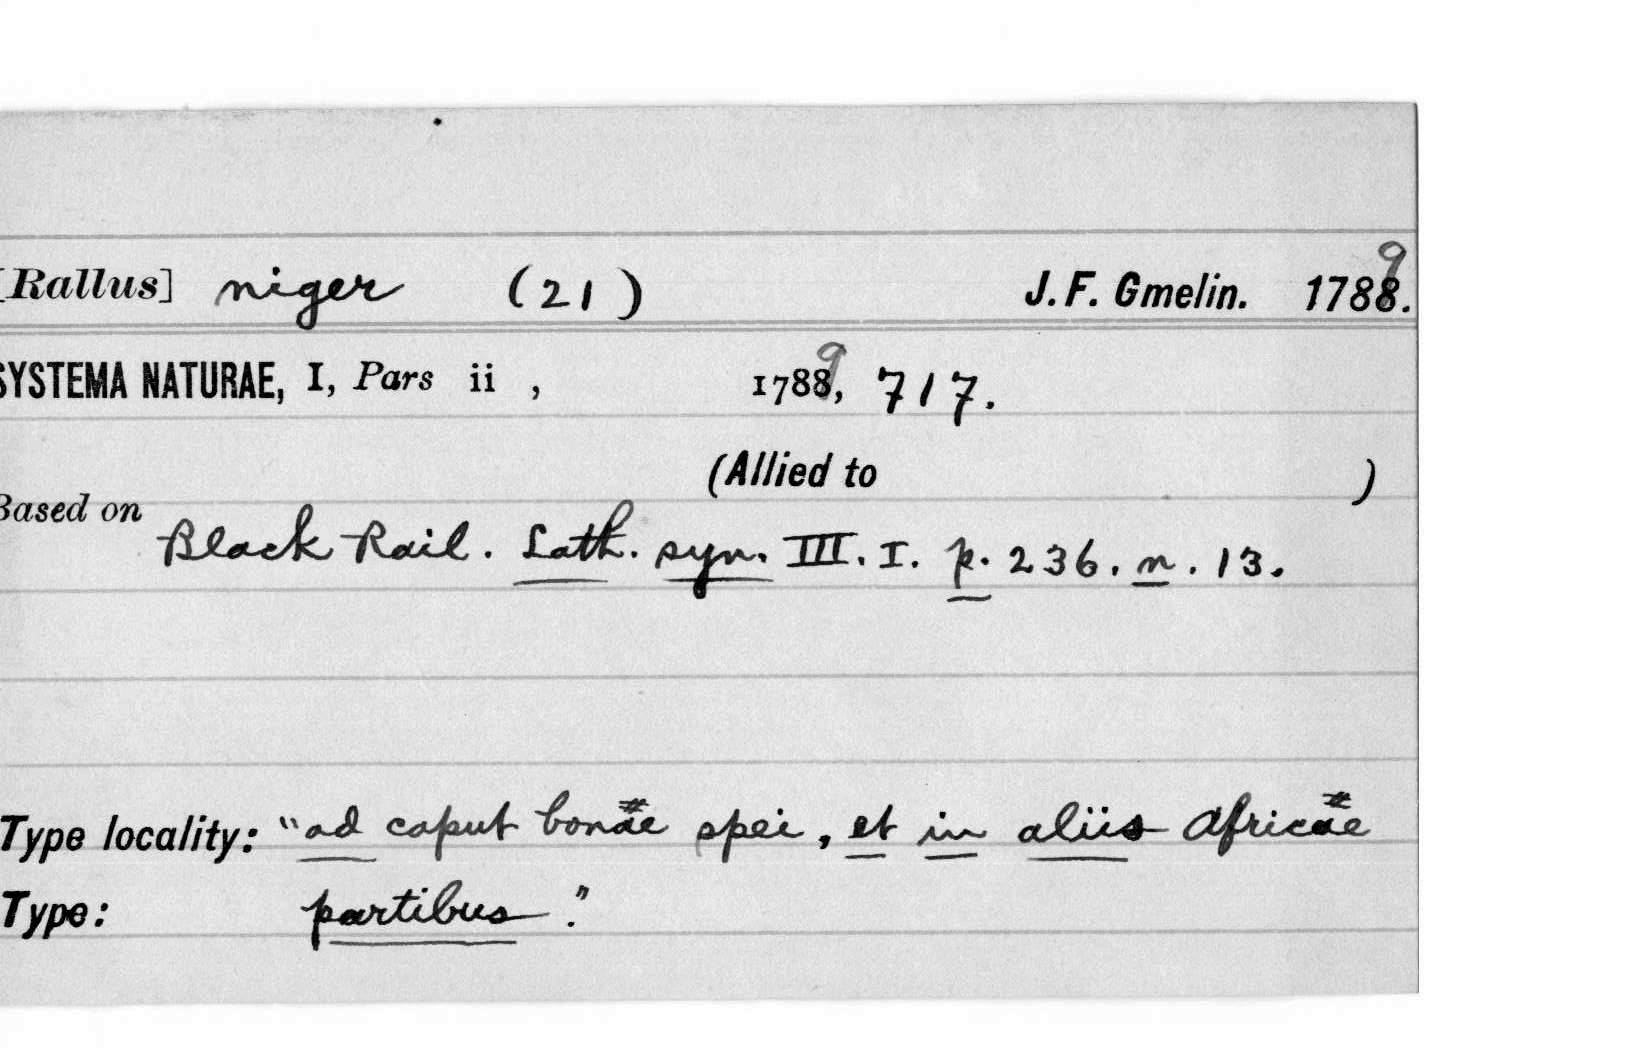 [Rallus] niger (21) J. F. Gmelin. 1789.
SYSTEMA NATURAE, I, Pars ii , 1789, 717.
(Allied to )
Based on
Black Rail. Lath. syn. III. I. p. 236. n. 13.
Type locality: "ad caput bonae spei, et in aliis Africae
Type: partibus."